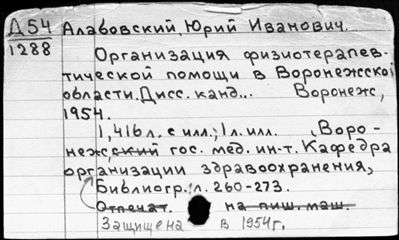 Д54 Алабовский, Юрий Иванович.
1288
Организация физиотерапев-
тической помощи в Воронежской
области. Дисс. канд... Воронеж,
1954.
1,416л. с илл.; 1л. илл. (Воро-
нежский гос. мед. ин-т. Кафедра
организации здравоохранения,
Библиогр.: л. 260-273.
Отпечат. на пиш. маш.
Защищена в 1954г.